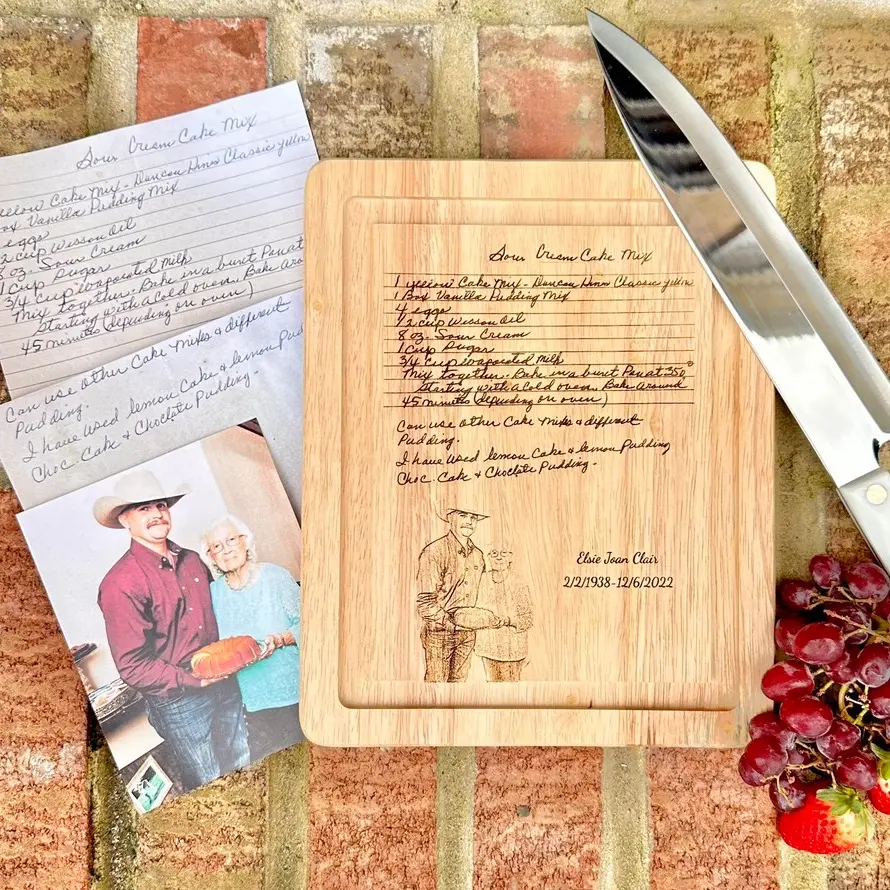 Sour Cream Cake Mix
yellow Cake Mix - Duncan Hines Classic yellow
Box Vanilla Pudding Mix
eggs
1/2 cup Wesson Oil
8 oz. Sour Cream
1 Cup Sugar
3/4 Cup evaporated Milk
Mix together. Bake in a bunt Pan at
Starting with a Cold oven. Bake aro
45 minutes (depending on oven)
Can use other Cake mixes & different
Pudding.
I have used lemon Cake & lemon Pud
Choc. Cake & Choclate Pudding.
Sour Cream Cake Mix
1 yellow Cake Mix - Duncan Hines Classic yellow
1 Box Vanilla Pudding Mix
4 eggs
1/2 cup Wesson Oil
8 oz. Sour Cream
1 Cup Sugar
3/4 Cup evaporated Milk
Mix together. Bake in a bunt Pan at 350°
Starting with a Cold oven. Bake around
45 minutes (depending on oven)
Can use other Cake mixes & different
Pudding.
I have used lemon Cake & lemon Pudding
Choc. Cake & Choclate Pudding.
Elsie Joan Clair
2/2/1938-12/6/2022